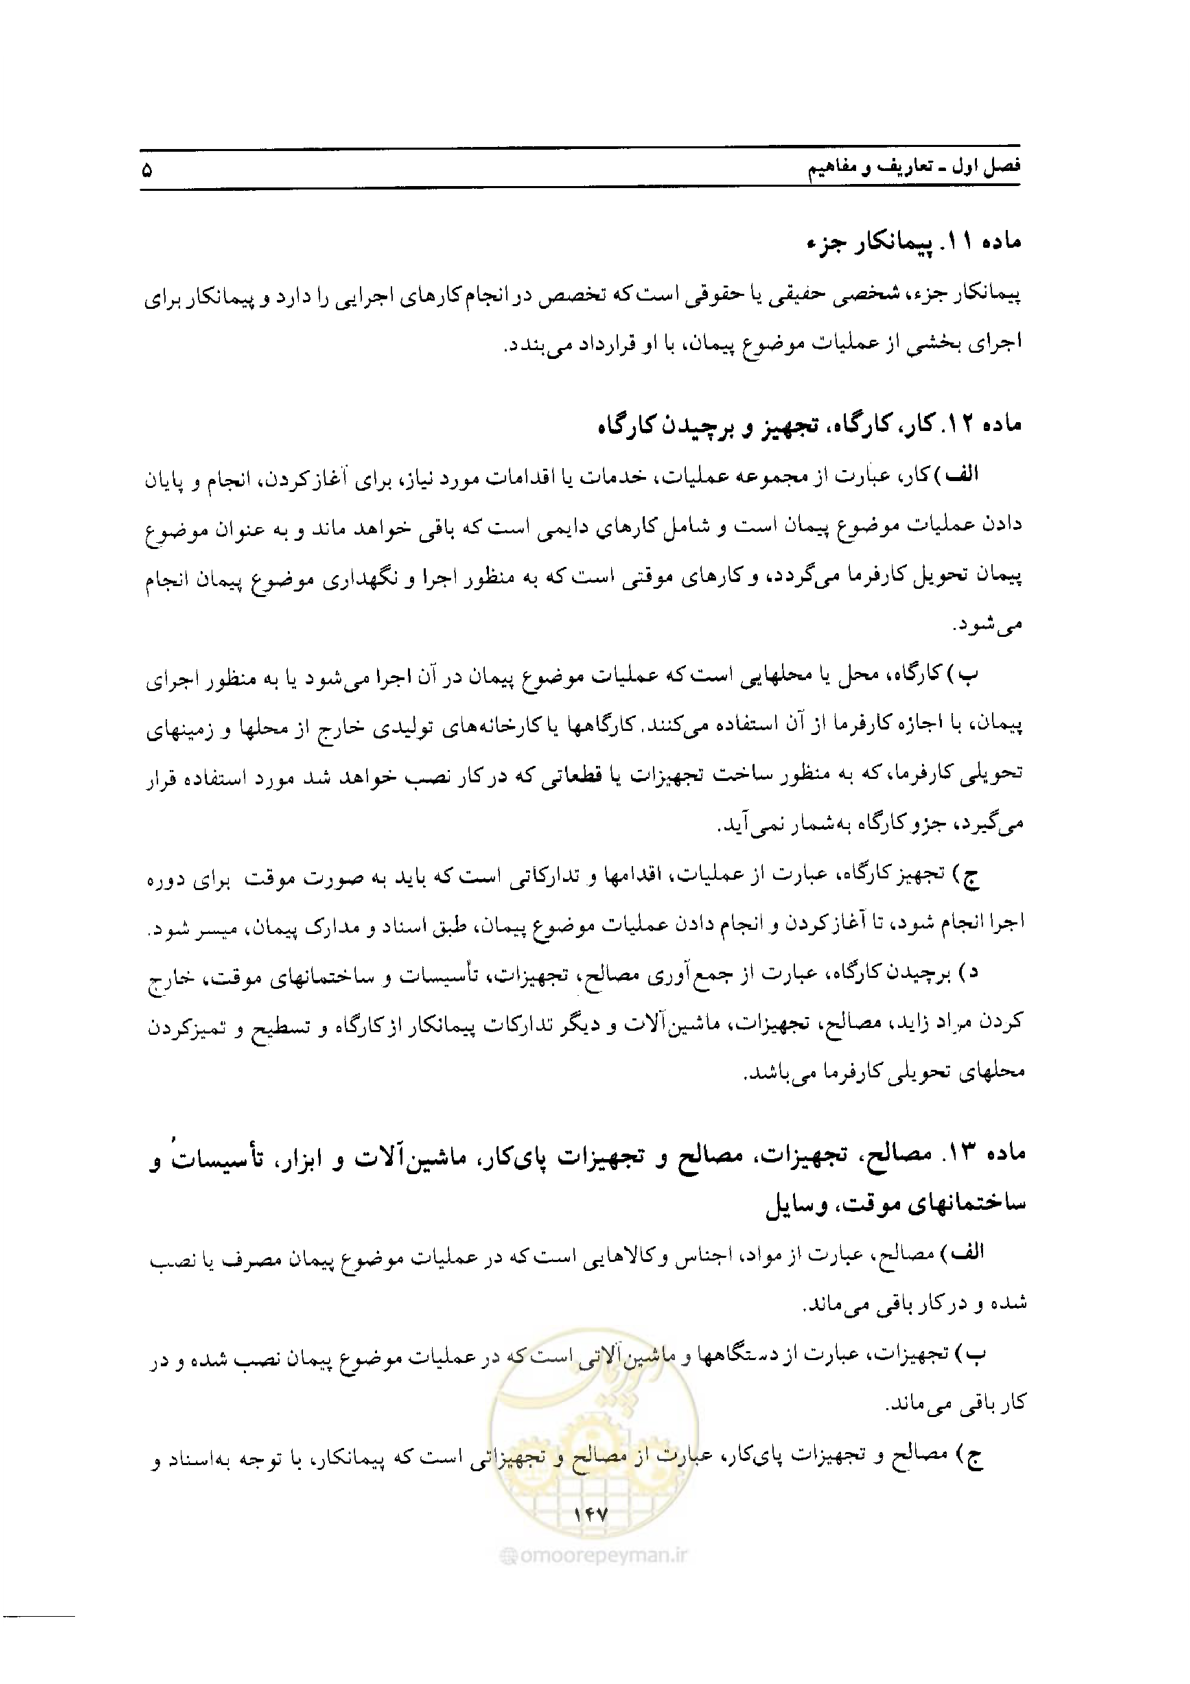 فصل اول ـ تعاریف و مفاهیم ۵
ماده ۱۱. پیمانکار جزء
پیمانکار جزء، شخصی حقیقی یا حقوقی است که تخصص در انجام کارهای اجرایی را دارد و پیمانکار برای
اجرای بخشی از عملیات موضوع پیمان، با او قرارداد می‌بندد.
ماده ۱۲. کار، کارگاه، تجهیز و برچیدن کارگاه
الف) کار، عبارت از مجموعه عملیات، خدمات یا اقدامات مورد نیاز، برای آغاز کردن، انجام و پایان
دادن عملیات موضوع پیمان است و شامل کارهای دایمی است که باقی خواهد ماند و به عنوان موضوع
پیمان تحویل کارفرما می‌گردد، و کارهای موقتی است که به منظور اجرا و نگهداری موضوع پیمان انجام
می‌شود.
ب) کارگاه، محل یا محلهایی است که عملیات موضوع پیمان در آن اجرا می‌شود یا به منظور اجرای
پیمان، با اجازه کارفرما از آن استفاده می‌کنند. کارگاهها یا کارخانه‌های تولیدی خارج از محلها و زمینهای
تحویلی کارفرما، که به منظور ساخت تجهیزات یا قطعاتی که در کار نصب خواهد شد مورد استفاده قرار
می‌گیرد، جزو کارگاه به‌شمار نمی‌آید.
ج) تجهیز کارگاه، عبارت از عملیات، اقدامها و تدارکاتی است که باید به صورت موقت برای دوره
اجرا انجام شود، تا آغاز کردن و انجام دادن عملیات موضوع پیمان، طبق اسناد و مدارک پیمان، میسر شود.
د) برچیدن کارگاه، عبارت از جمع‌آوری مصالح، تجهیزات، تأسیسات و ساختمانهای موقت، خارج
کردن مواد زاید، مصالح، تجهیزات، ماشین‌آلات و دیگر تدارکات پیمانکار از کارگاه و تسطیح و تمیزکردن
محلهای تحویلی کارفرما می‌باشد.
ماده ۱۳. مصالح، تجهیزات، مصالح و تجهیزات پای‌کار، ماشین‌آلات و ابزار، تأسیسات و
ساختمانهای موقت، وسایل
الف) مصالح، عبارت از مواد، اجناس و کالاهایی است که در عملیات موضوع پیمان مصرف یا نصب
شده و در کار باقی می‌ماند.
ب) تجهیزات، عبارت از دستگاهها و ماشین‌آلاتی است که در عملیات موضوع پیمان نصب شده و در
کار باقی می‌ماند.
ج) مصالح و تجهیزات پای‌کار، عبارت از مصالح و تجهیزاتی است که پیمانکار، با توجه به‌اسناد و
امور پیمان
۱۴۷
@omoorepeyman.ir